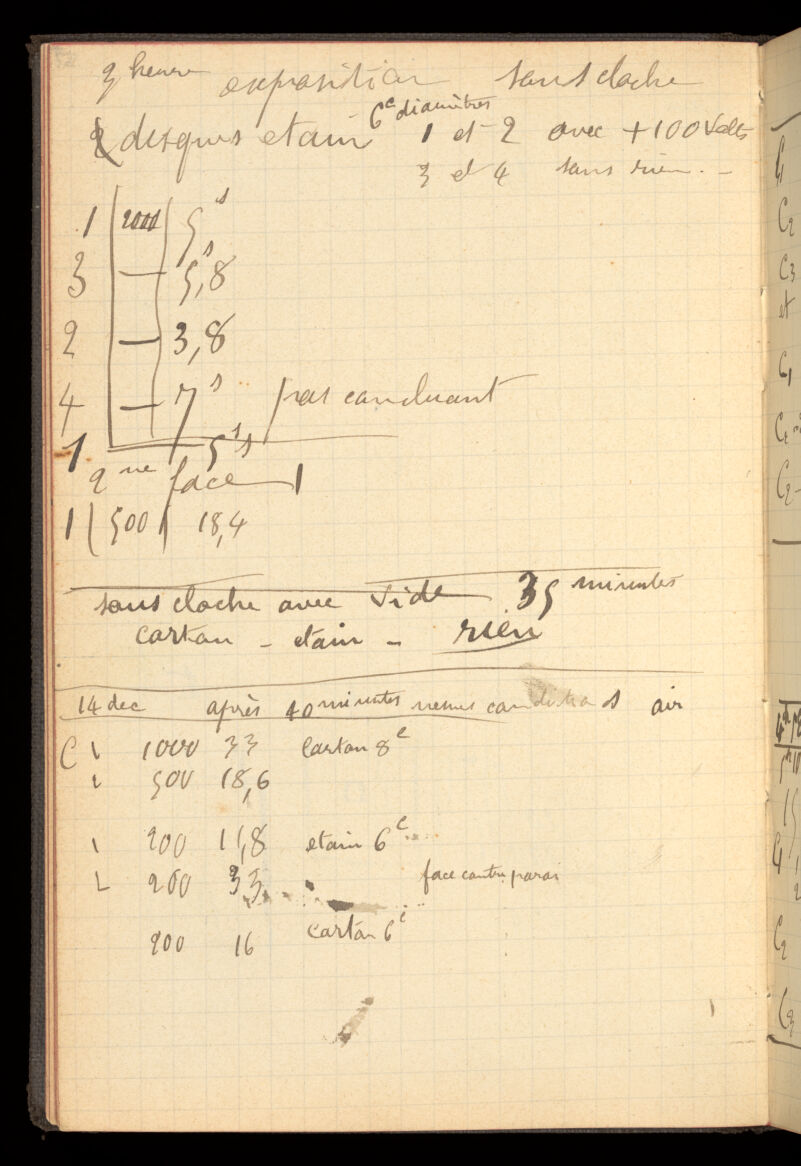 heure exposition sans cloche
disques etain 6c diamètres 1 et 2 avec +100 Volts
3 et 4 sans rien.
1 2000 5s
3 — 5s,8
2 — 3,8
4 — 7s pas conduisant
1 5s
2me face 1
1 500 18,4
sous cloche avec vide 35 minutes
carton - etain - rien
14 dec après 40 minutes memes conditions air
C 1000 33 Carton 8c
500 18,6
200 11,8 etain 6c
200 33 face contre paroi
200 16 carton 6c
C1
C2
C3
et
C1
C2
C2
C3